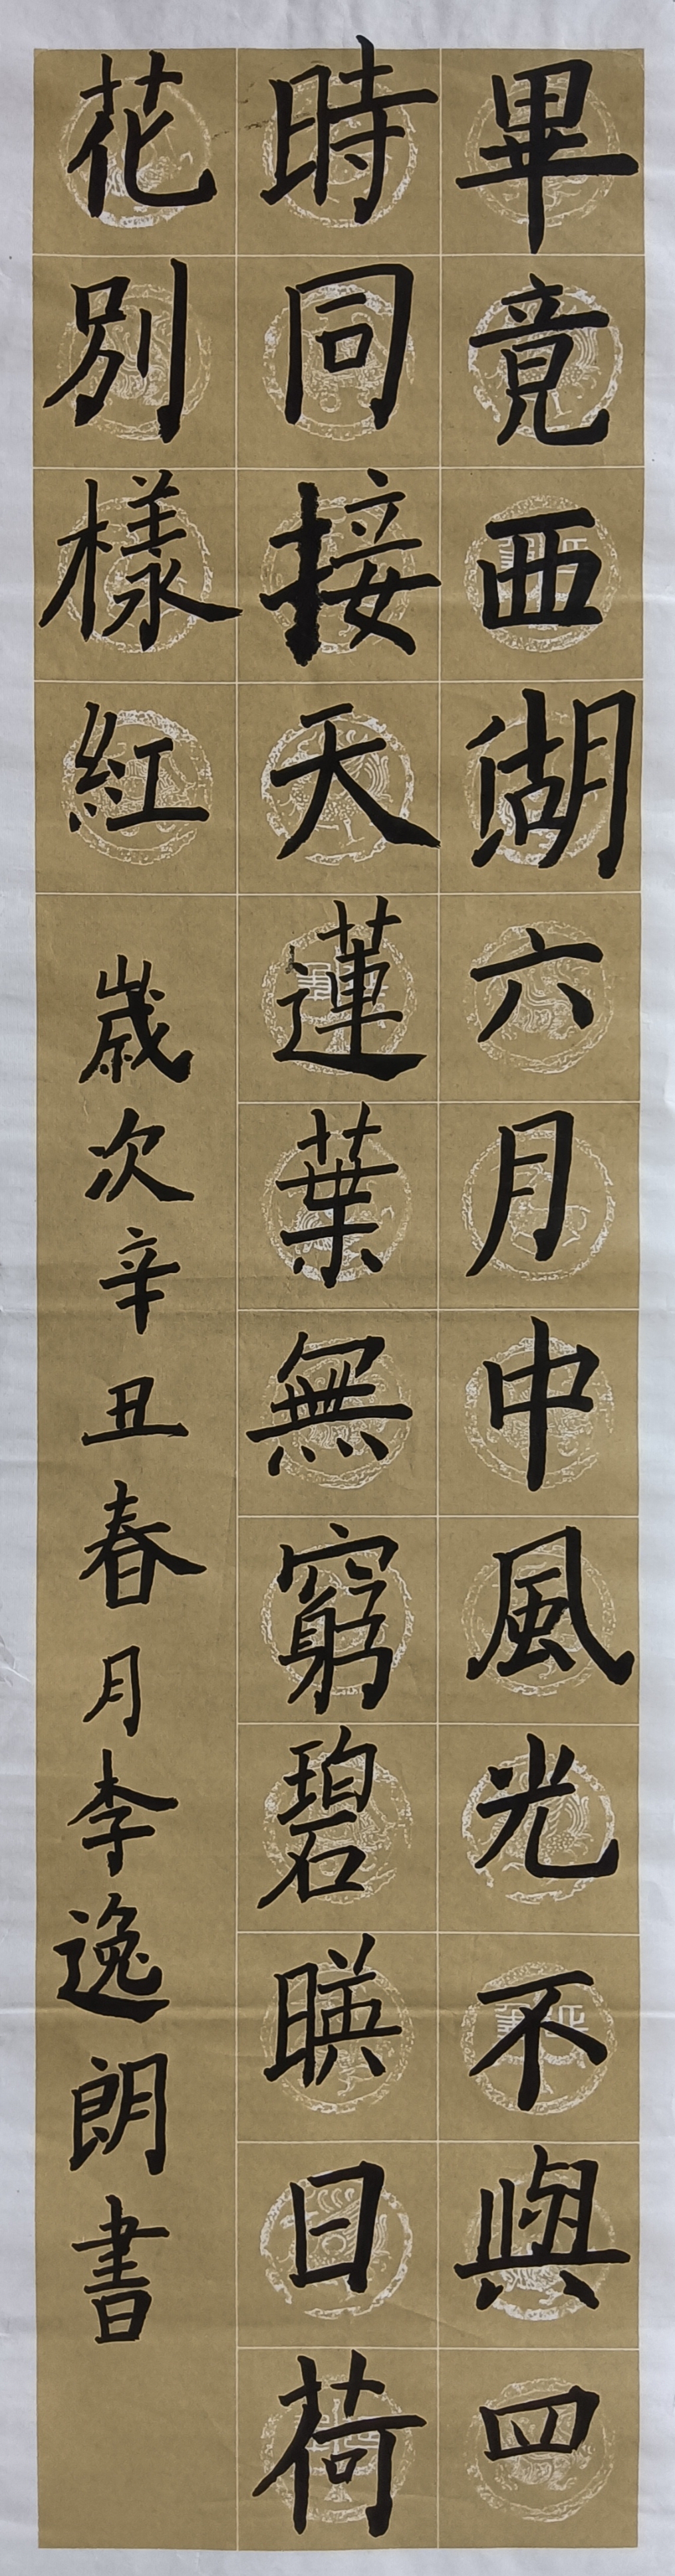 畢竟西湖六月中風光不與四
時同接天蓮葉無窮碧暎日荷
花別樣紅
歲次辛丑春月李逸朗書